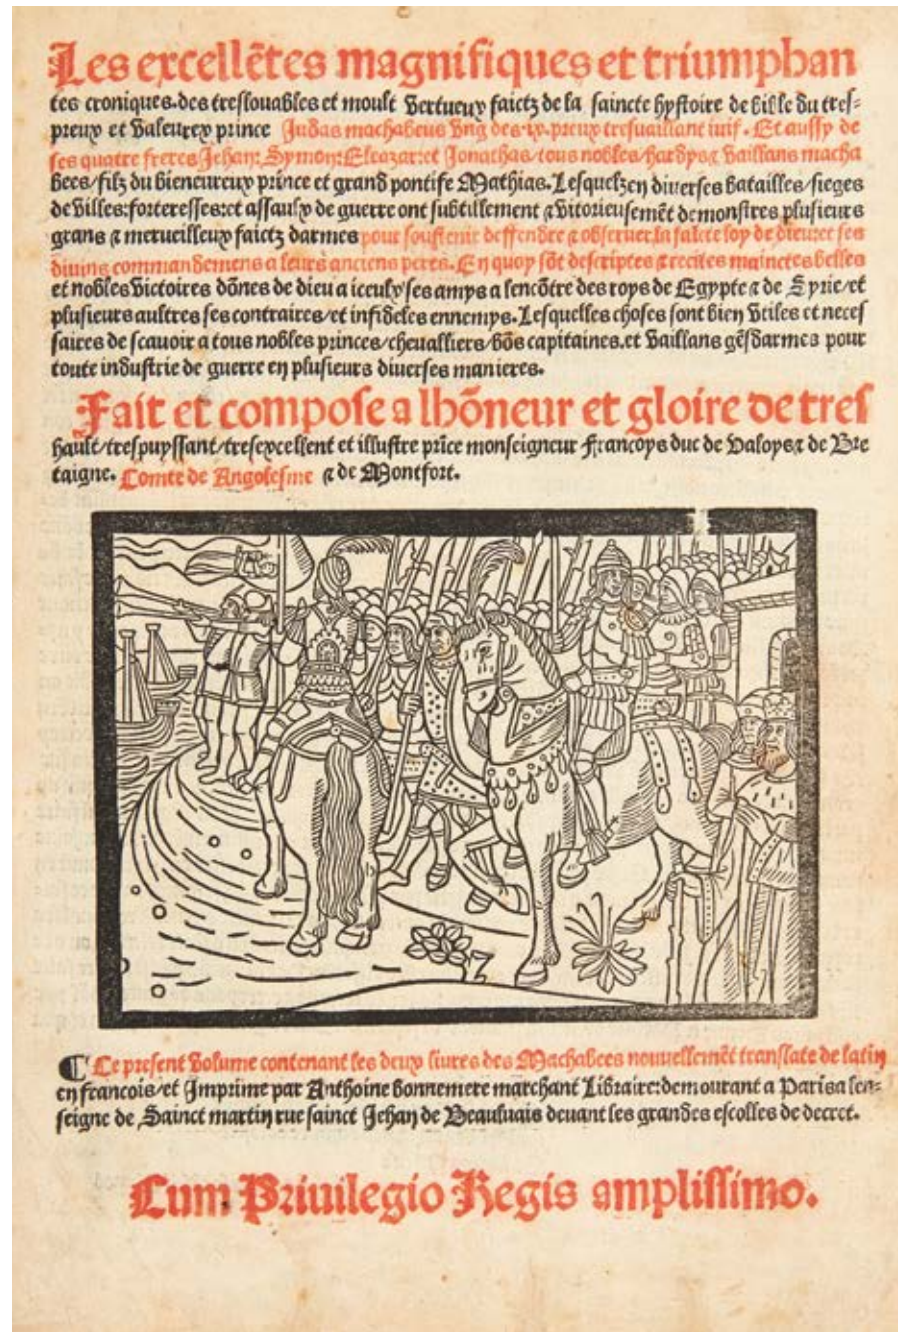 Les excellẽtes magnifiques et triumphan
tes croniques. des treslouables et moult vertueux faictz de la saincte hystoire de bible du tres-
preux et valeureux prince Judas machabeus ung des .ix. preux tresvaillant iuif. Et aussy de
ses quatre freres Jehan: Symon: Eleazar: et Jonathas / tous nobles / hardys ⁊ vaillans macha
bees / filz du bieneureux prince et grand pontife Mathias. Lesquelz en diverses batailles / sieges
de villes: forteresses: et assaulx de guerre ont subtillement ⁊ vitorieusemẽt demonstres plusieurs
grans ⁊ merueilleux faictz darmes pour soustenir deffendre ⁊ observer la saicte loy de dieu: et ses
divins commandemens a leurs anciens peres. En quoy sõt descriptes ⁊ recites mainctes belles
et nobles victoires dõnes de dieu a iceulx ses amys a lencõtre des roys de Egypte ⁊ de Syrie / et
plusieurs aultres ses contraires / et infideles ennemys. Lesquelles choses sont bien utiles et neces
saires de scauoir a tous nobles princes / chevalliers / bõs capitaines. et vaillans gẽsdarmes pour
toute industrie de guerre en plusieurs diuerses manieres.
Fait et compose a lhõneur et gloire de tres
hault / trespuyssant / tresexcellent et illustre prĩce monseigneur Francoys duc de Valoys ⁊ de Bre
taigne. Comte de Angolesme ⁊ de Montfort.
¶ Ce present volume contenant les deux livres des Machabees nouuellemẽt translate de latin
en francois / et Imprime par Anthoine bonnemere marchant Libraire: demourant a Paris a len-
seigne de Sainct martin rue sainct Jehan de Beauluais deuant les grandes escolles de decret.
Cum Priuilegio Regis amplissimo.